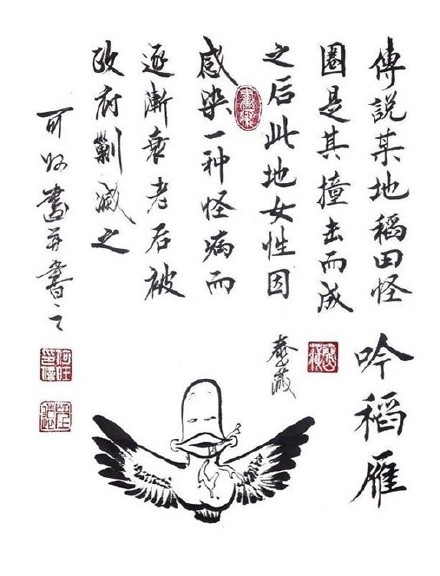 傳說某地稻田怪
圈是其撞击而成
之后此地女性因
感染一种怪病而
逐漸衰老后被
政府剿滅之
吟稻雁